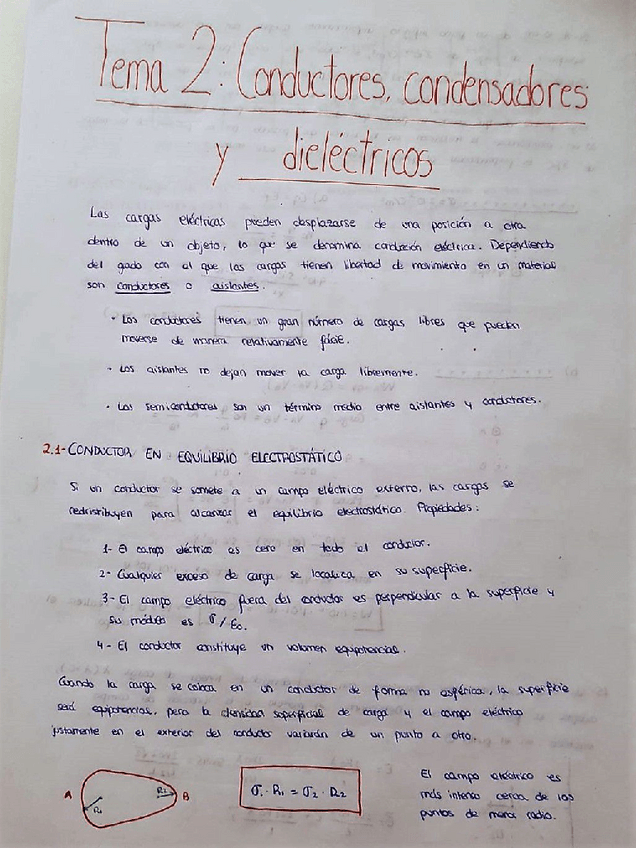 Tema 2: Conductores, condensadores
y dieléctricos
Las cargas eléctricas pueden desplazarse de una posición a otra
dentro de un objeto, lo que se denomina conducción eléctrica. Dependiendo
del grado con el que las cargas tienen libertad de movimiento en un material
son conductores o aislantes.
· Los conductores tienen un gran número de cargas libres que pueden
moverse de manera relativamente fácil.
· Los aislantes no dejan mover la carga libremente.
· Los semiconductores son un término medio entre aislantes y conductores.
2.1- CONDUCTOR EN EQUILIBRIO ELECTROSTÁTICO
Si un conductor se somete a un campo eléctrico externo, las cargas se
redistribuyen para alcanzar el equilibrio electrostático. Propiedades:
1- El campo eléctrico es cero en todo el conductor.
2- Cualquier exceso de carga se localiza en su superficie.
3- El campo eléctrico fuera del conductor es perpendicular a la superficie y
su módulo es σ/ε₀.
4- El conductor constituye un volumen equipotencial.
Cuando la carga se coloca en un conductor de forma no esférica, la superficie
será equipotencial, pero la densidad superficial de carga y el campo eléctrico
justamente en el exterior del conductor variarán de un punto a otro.
A R₁ R₂ B
σ₁ · R₁ = σ₂ · R₂
El campo eléctrico es
más intenso cerca de los
puntos de menor radio.